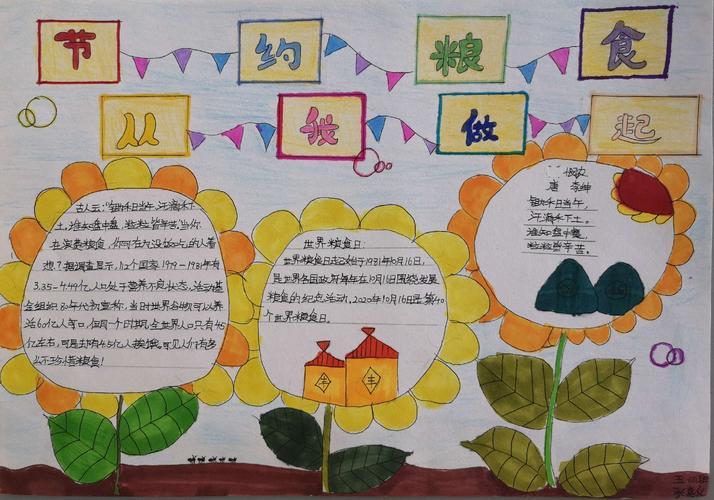 节约粮食
从我做起
古人云:"锄禾日当午,汗滴禾下
土,谁知盘中餐,粒粒皆辛苦。"当你
在浪费粮食,你可有为没饭吃的人着
想?据调查显示,112个国家1979—1981年有
3.35-4.49亿人口处于营养不良状态,
会组织80年代初宣称,当时世界谷物可以养
活60亿人口,但同一个时期,全世界人口只有45
亿左右,可是却有4.5亿人挨饿。可见人们有多
么不珍惜粮食!
世界粮食日:
世界粮食日起始于1981年10月16日,
是世界各国政府每年在10月16日围绕发展
粮食的纪念活动,2020年10月16日是第40
个世界粮食日。
丰
丰
悯农
唐 李绅
锄禾日当午,
汗滴禾下土。
谁知盘中餐,
粒粒皆辛苦。